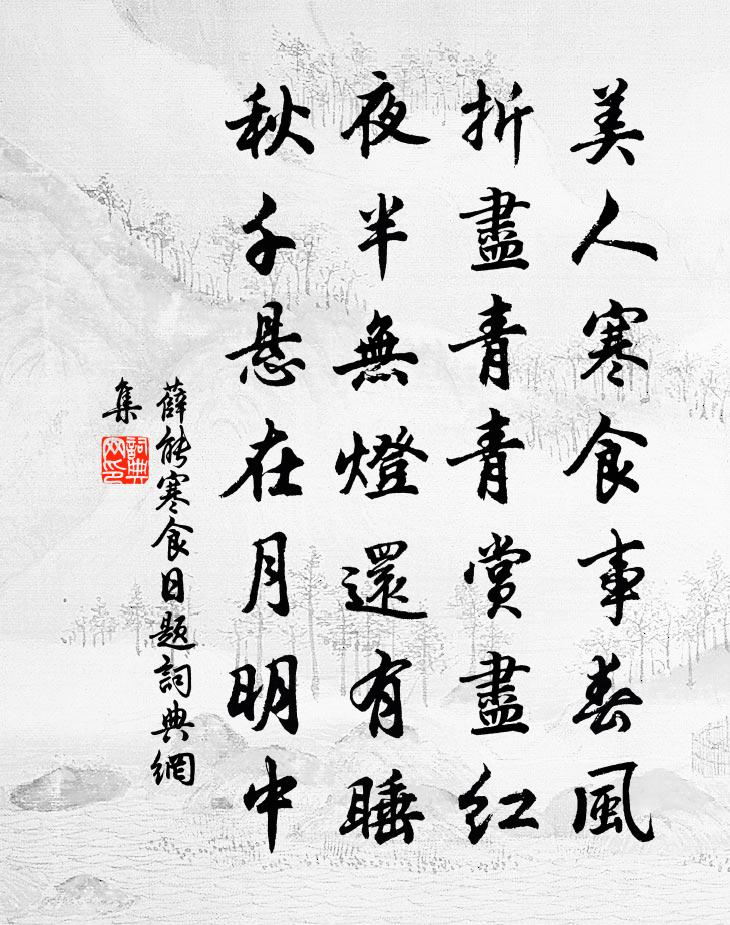 美人寒食事春風
折盡青青賞盡紅
夜半無燈還有睡
秋千悬在月明中
薛能寒食日题詞典網
集
詞典
网印